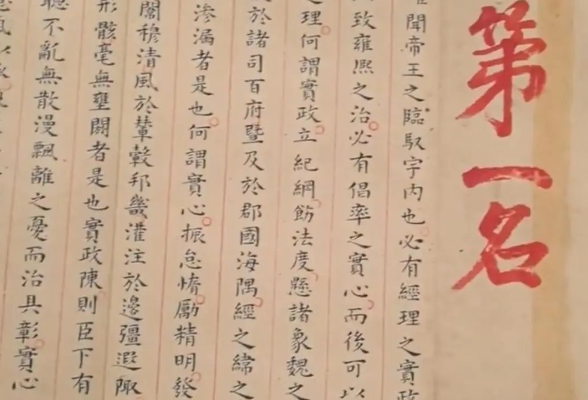 第一名
聞帝王之臨馭宇内也必有經理之實政
致雍熙之治必有倡率之實心而後可以
之理何謂實政立紀綱飭法度懸諸象魏之
於諸司百府暨及於郡國海隅經之緯之
滲漏者是也何謂實心振怠惰勵精明發
穆清風於輦轂邦畿灌注於邊疆遐陬
形骸毫無壅閼者是也實政陳則臣下有
不亂無散漫飄離之憂而治具彰實心